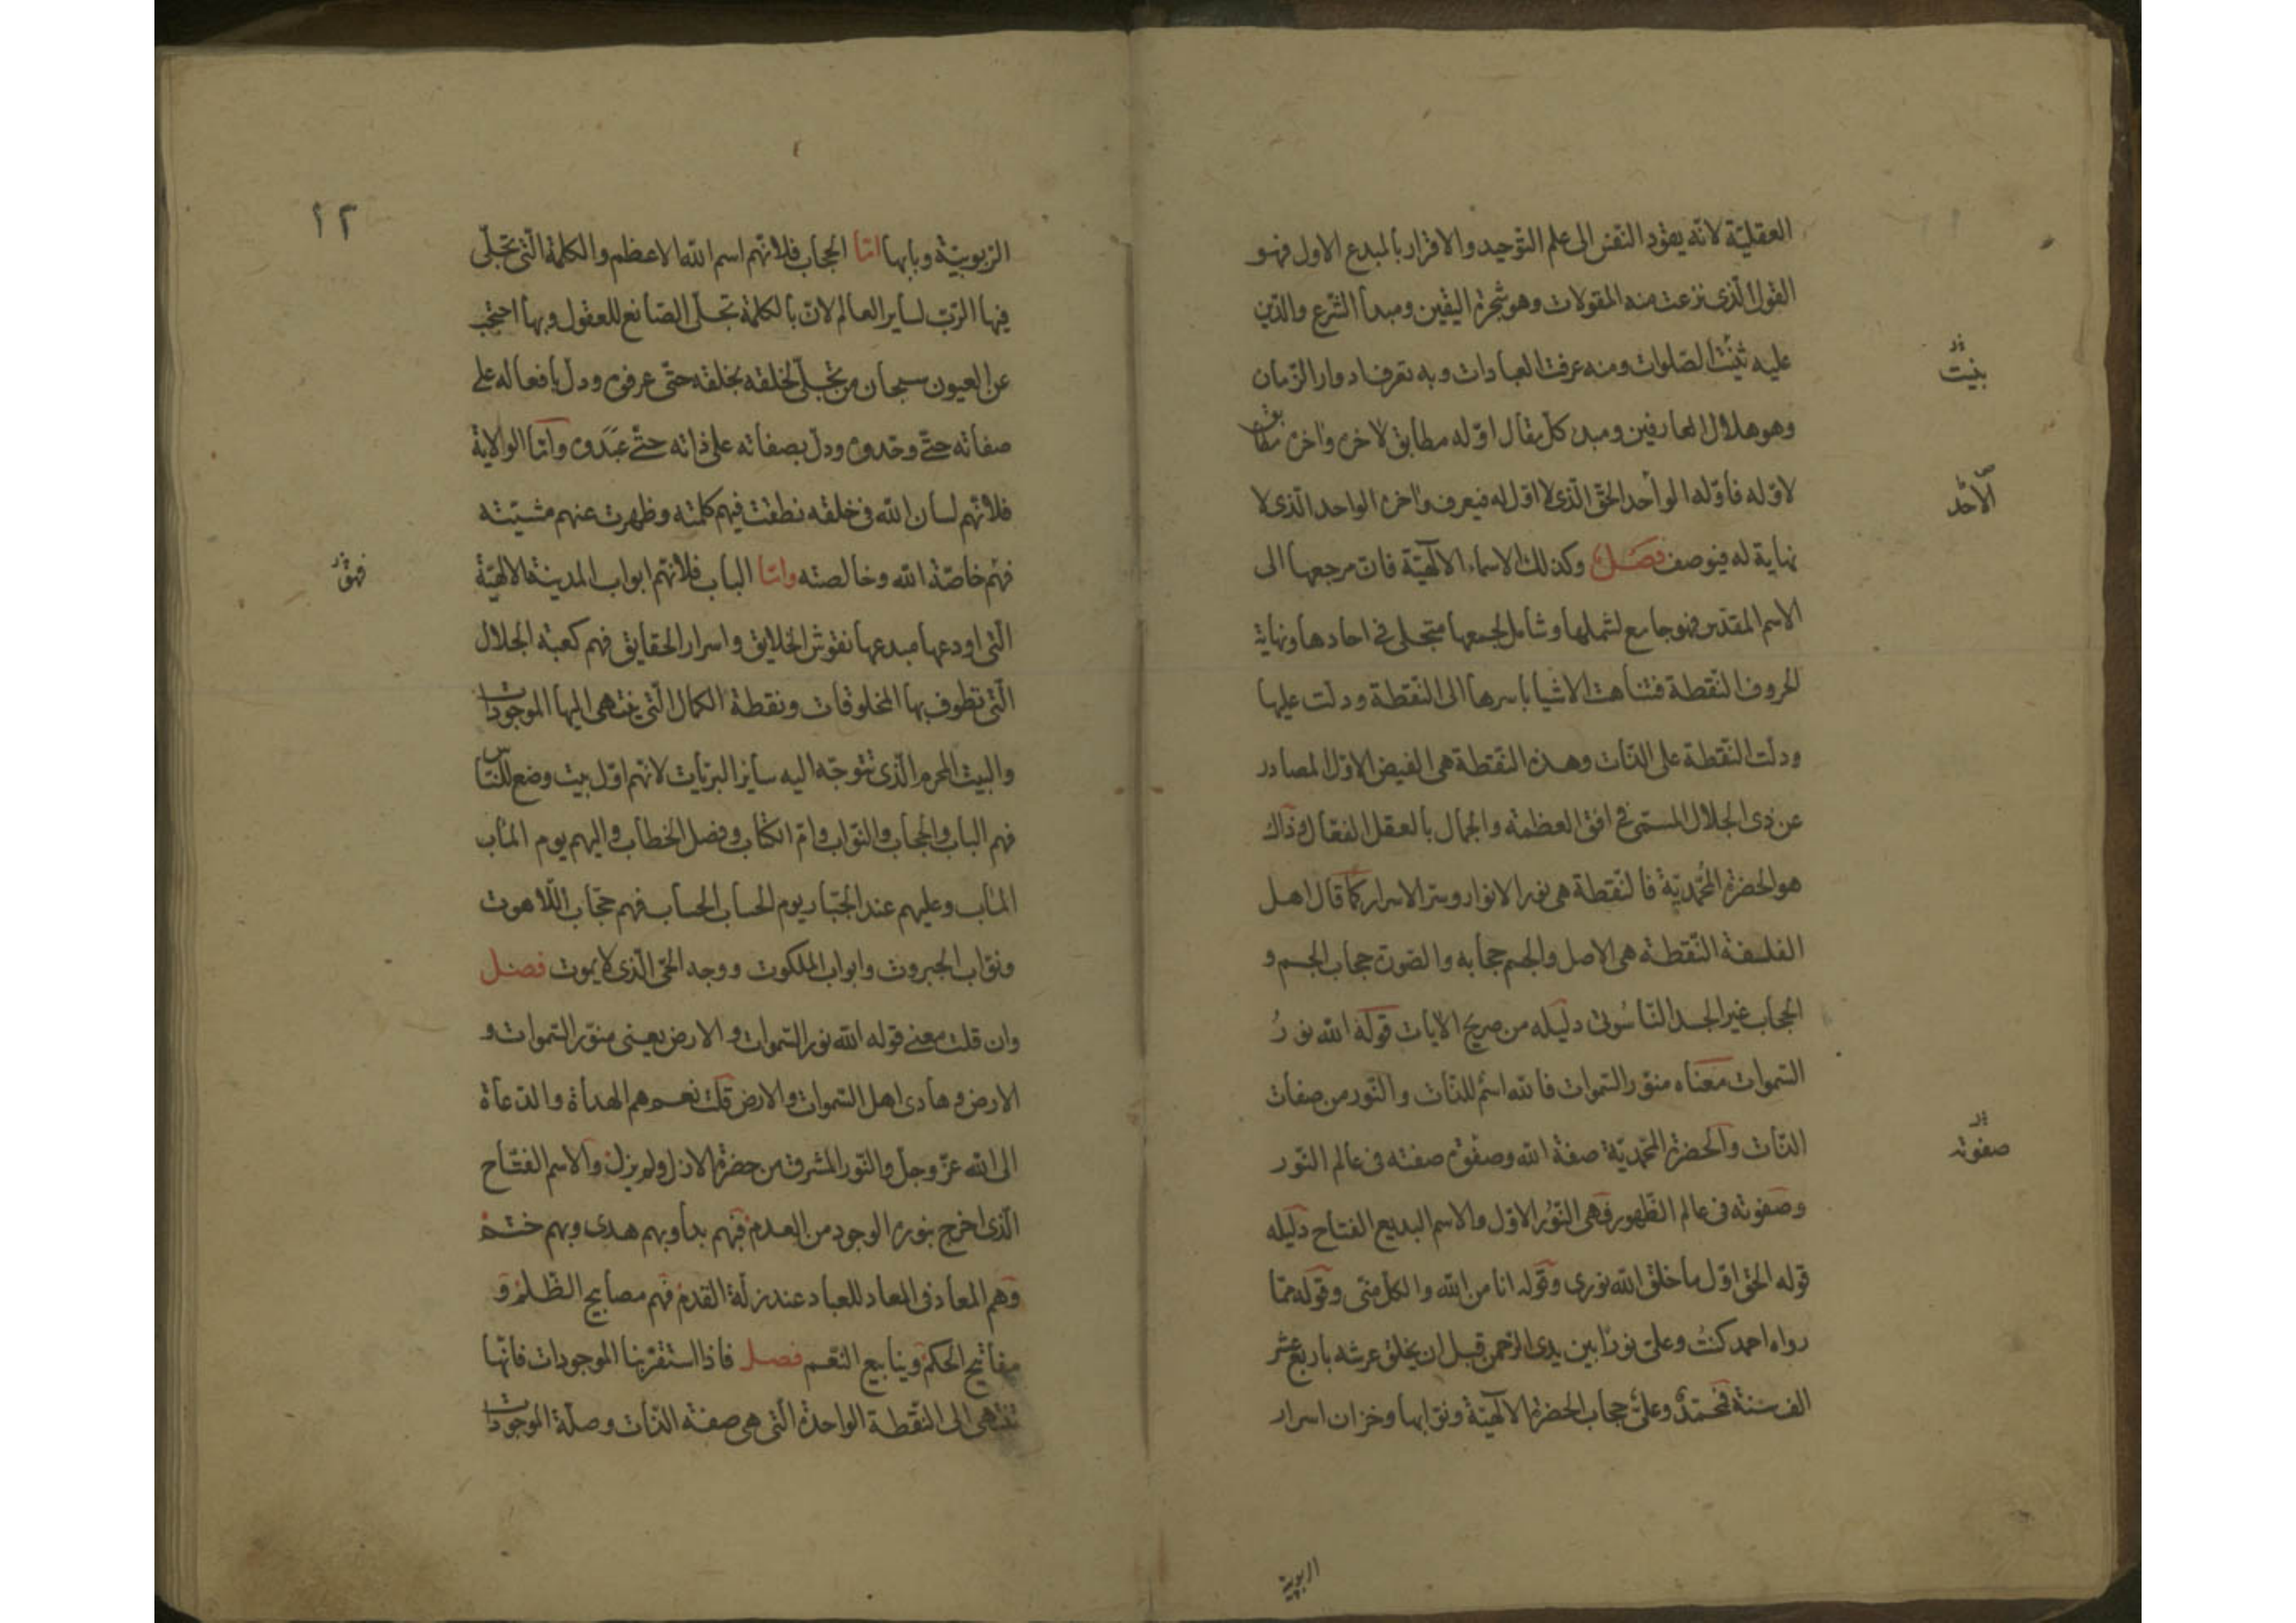 العقليّة لانّه يقود النفس الى علم التوحيد والاقرار بالمبدع الاول فهو
القول الّذى نزعت منه المقولات وهو شجرة اليقين ومبدأ الشرع والدّين
عليه ثبتت الصّلوات ومنه عرفت العبادات وبه تعرف ادوار الزّمان
بنيت
وهو هلال العارفين ومبدء كلّ يقال اوّله مطابق لاخره واخره مطابق
لاوّله فاوّله الواحد الحقّ الّذى لا اوّل له فيعرف واخره الواحد الّذى لا
الأحد
نهاية له فيوصف فصل وكذلك الاسماء الآلهيّة فانّ مرجعها الى
الاسم المقدّس فهو جامع لشملها وشامل لجمعها متجلى فى احادها ونهاية
الحروف النّقطة فتناهت الاشيا باسرها الى النّقطة ودلّت عليها
ودلّت النّقطة على الذّات وهذه النّقطة هى الفيض الاوّل المصادر
عن ذى الجلال المسمّى فى افق العظمة والجمال بالعقل الفعّال وذاك
هو الحضرة المحمّديّة فالنّقطة هى نور الانوار وسرّ الاسرار كما قال اهل
الفلسفة النّقطة هى الاصل والجسم حجابه والصّورة حجاب الجسم و
الحجاب غير الجسد النّاسوتى دليله من صريح الآيات قوله الله نورُ
السّموات معناه منوّر السّموات فالله اسم للذّات والنّور من صفات
الذّات والحضرة المحمّديّة صفة الله وصفوة صفته فى عالم النّور
صفوته
وصفوته فى عالم الظّهور فهى النّور الاوّل والاسم البديع الفتاح دليله
قوله الحق اوّل ما خلق الله نورى وقوله انا من الله والكلّ منّى وقوله ممّا
رواه احمد كنتُ وعلىّ نورًا بين يدى الرّحمن قبل ان يخلق عرشه باربع عشر
الف سنة فمحمّدٌ وعلىّ حجاب الحضرة الآلهيّة ونوّابها وخزان اسرار
الربوبية
١٢
الرّبوبيّة وبابها امّا الحجاب فلانّهم اسم الله الاعظم والكلمة الّتى تجلّى
فيها الرّبّ لساير العالم لانّ بالكلمة تجلّى الصّانع للعقول وبها احتجب
عن العيون سبحان من تجلّى لخلقه بخلقه حتّى عرفوه ودلّ بافعاله على
صفاته حتّى وحّدوه ودلّ بصفاته على ذاته حتّى عبدوه وامّا الولاية
فلانّهم لسان الله فى خلقه نطقت فيهم كلمته وظهرت عنهم مشيّته
فهم خاصّة الله وخالصته وامّا الباب فلانّهم ابواب المدينة الالهيّة
الّتى اودعها مبدعها نقوش الخلايق واسرار الحقايق فهم كعبة الجلال
الّتى تطوف بها المخلوقات ونقطة الكمال الّتى ينتهى اليها الموجودات
والبيت المحرم الّذى تتوجّه اليه ساير البريّات لانّهم اوّل بيت وضع للنّاس
فهم الباب والحجاب والنّوّاب وامّ الكتاب وفصل الخطاب واليهم يوم المآب
المآب وعليهم عند الجبّار يوم الحساب الحساب فهم حجّاب اللّاهوت
ونوّاب الجبروت وابواب الملكوت ووجه الحىّ الّذى لا يموت فصل
وان قلت معنى قوله الله نور السّموات والارض يعنى منوّر السّموات و
الارض وهادى اهل السّموات والارض قلت نعم هم الهداة والدّعاة
الى الله عزّ وجلّ والنّور المشرق من حضرة الازل ولم يزل والاسم الفتّاح
الّذى اخرج بنوره الوجود من العدم فبهم بدأ وبهم هدى وبهم ختم
وهم المعاد فى المعاد للعباد عند زلّة القدم فهم مصابيح الظّلم و
مفاتيح الحكم وينابيع النّعم فصل فاذا استقرينا الموجودات فانّها
تتناهى الى النّقطة الواحدة الّتى هى صفة الذّات وصلة الموجودات